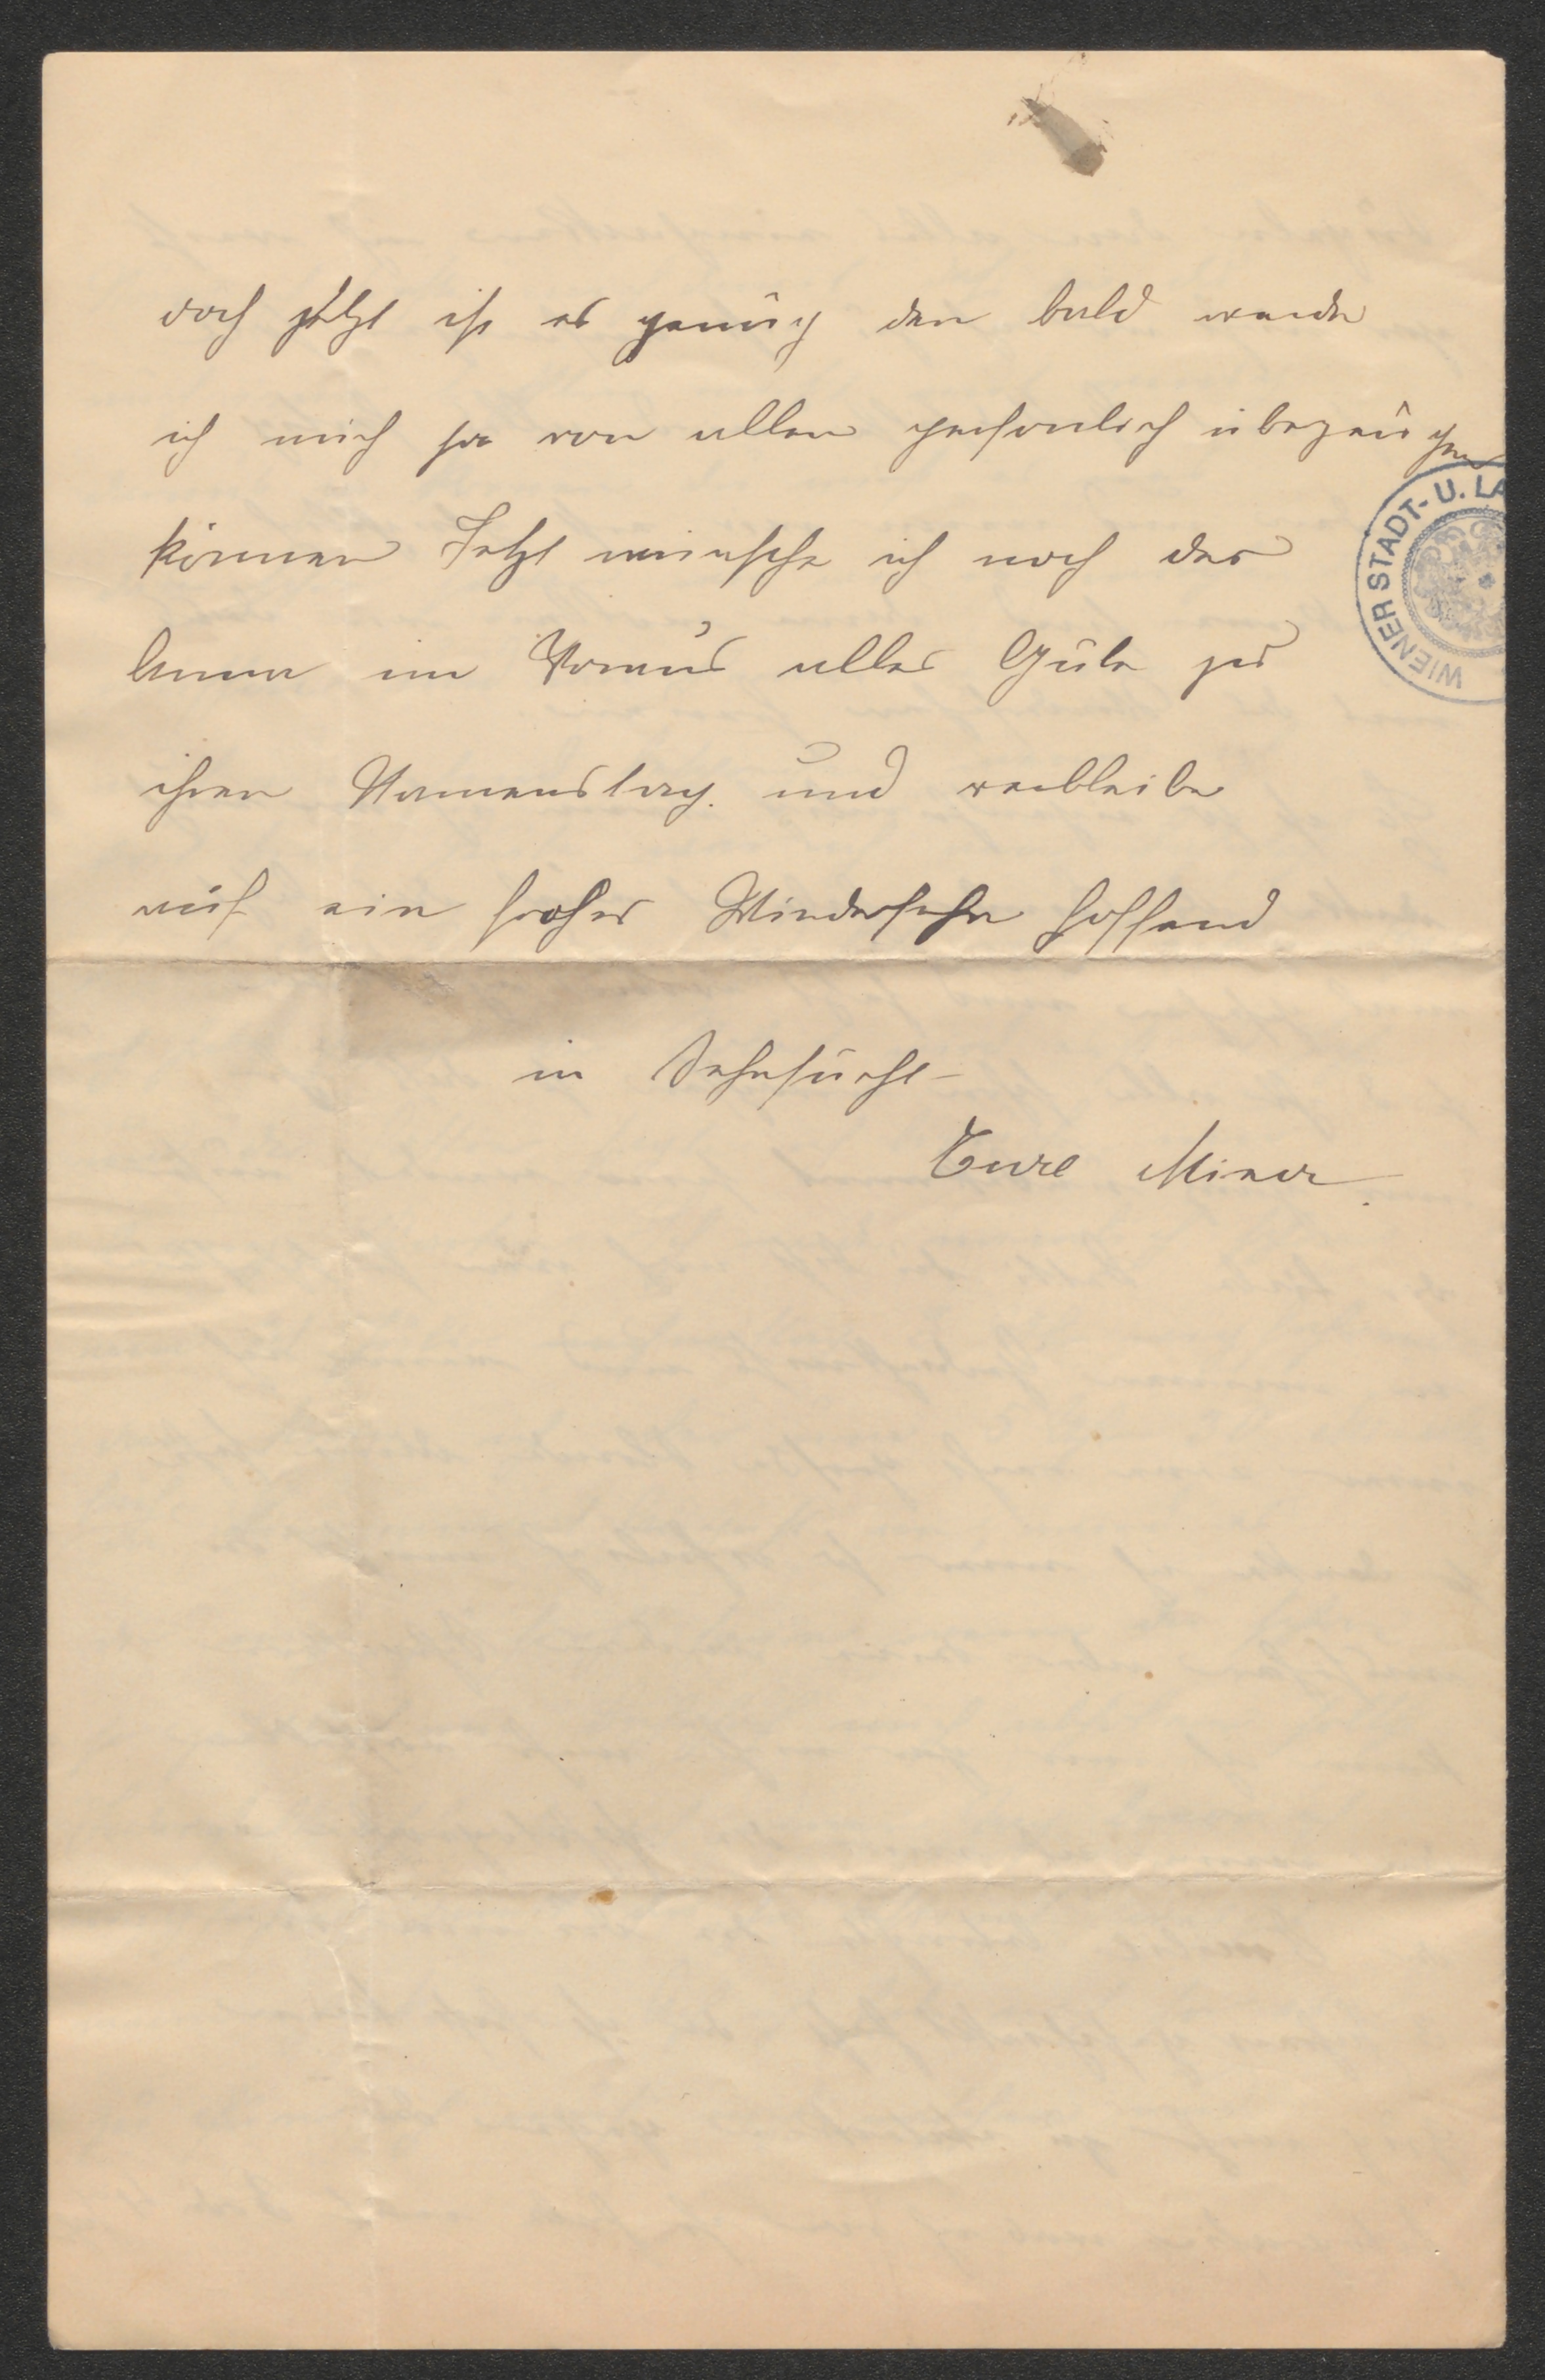 doch jetzt ist es genug den bald werde
ich mich ja von allen persönlich überzeugen
können Jetzt wünsche ich noch der
Anna im Voraus alles Gute zu
ihren Namenstag. und verbleibe
auf ein frohes Wiedersehn hoffend
in Sehnsucht
Eure
WIENER STADT- U. LA